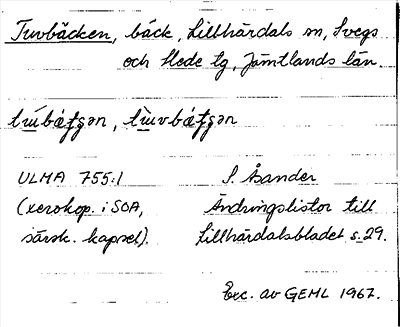 Tuvbäcken, bäck, Lillhärdals sn, Svegs
och Hede tg, Jämtlands län.
ULMA 755:1
S. Åsander
(xerokop. i SOA,
Ändringslistor till
särsk. kapsel).
Lillhärdalsbladet s. 29.
Exc. av GEML 1967.